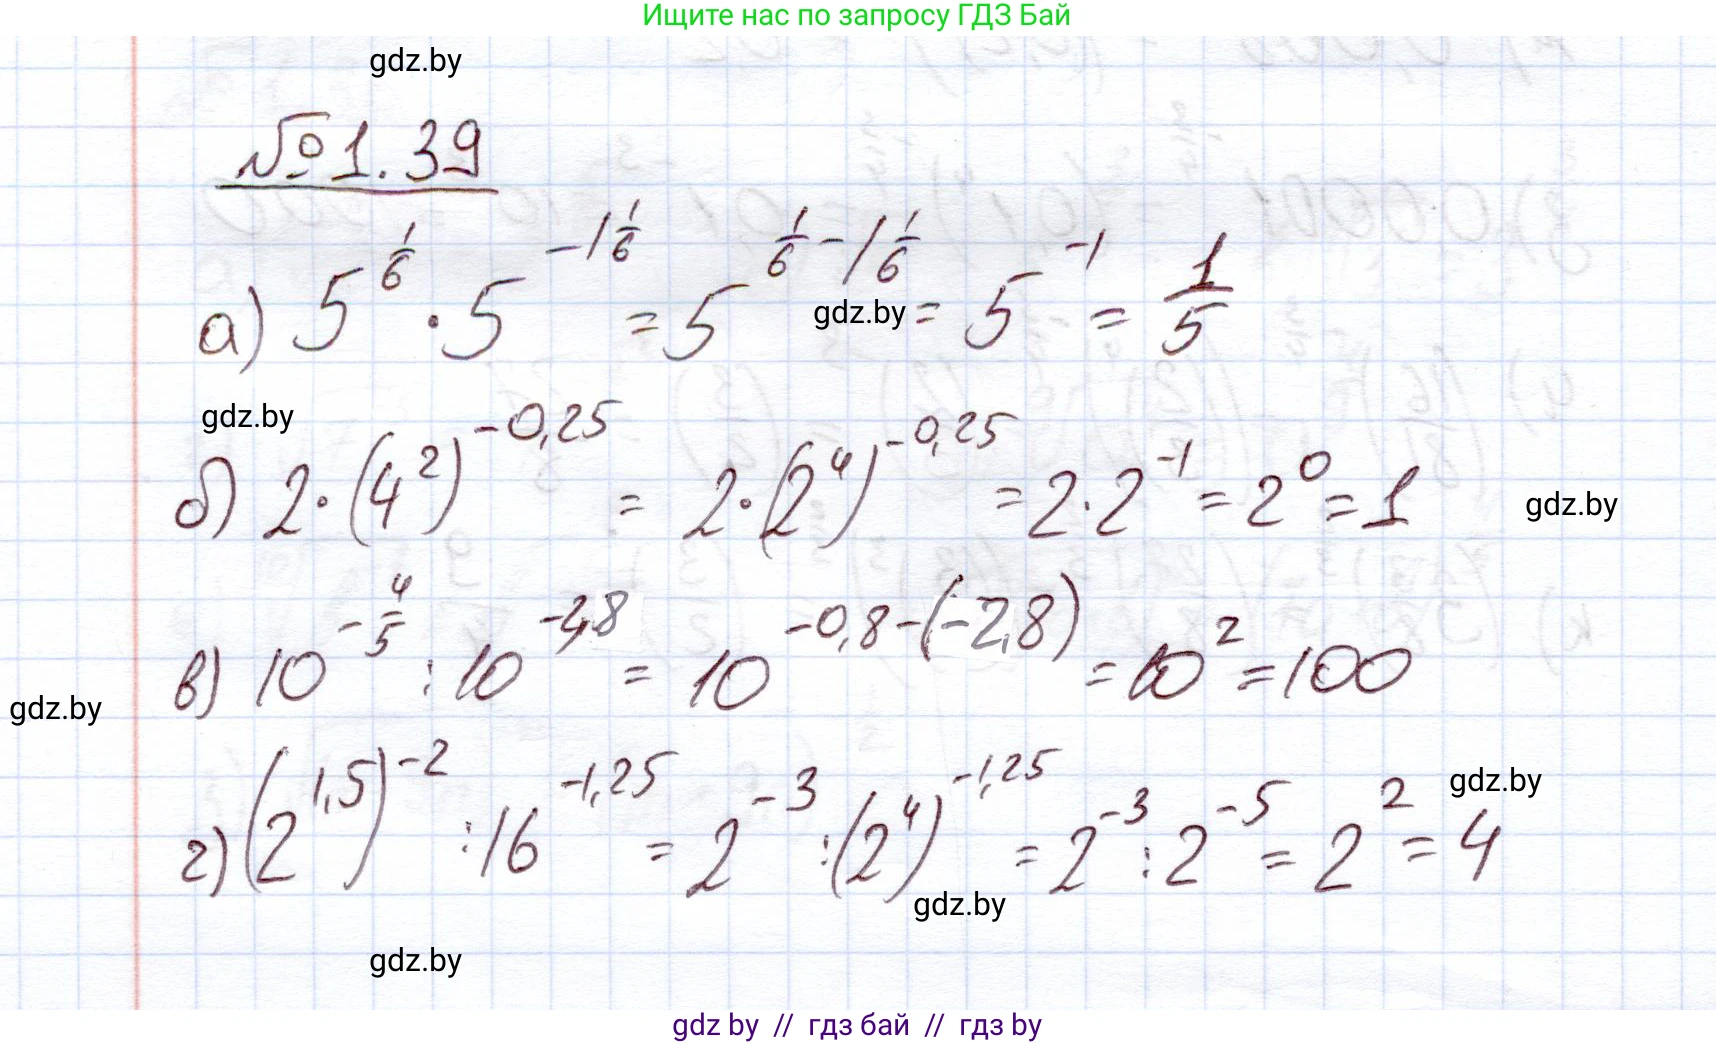 Ищите нас по запросу ГДЗ Бай
gdz.by
№1.39
а) 5^{1/6} · 5^{-1 1/6} = 5^{1/6 - 1 1/6} = 5^{-1} = 1/5
gdz.by
gdz.by
б) 2·(4^2)^{-0,25} = 2·(2^4)^{-0,25} = 2·2^{-1} = 2^0 = 1
gdz.by
в) 10^{-4/5} : 10^{-2,8} = 10^{-0,8-(-2,8)} = 10^2 = 100
gdz.by
gdz.by
г) (2^{1,5})^{-2} : 16^{-1,25} = 2^{-3} : (2^4)^{-1,25} = 2^{-3} : 2^{-5} = 2^2 = 4
gdz.by
gdz.by
gdz by // гдз бай // гдз by